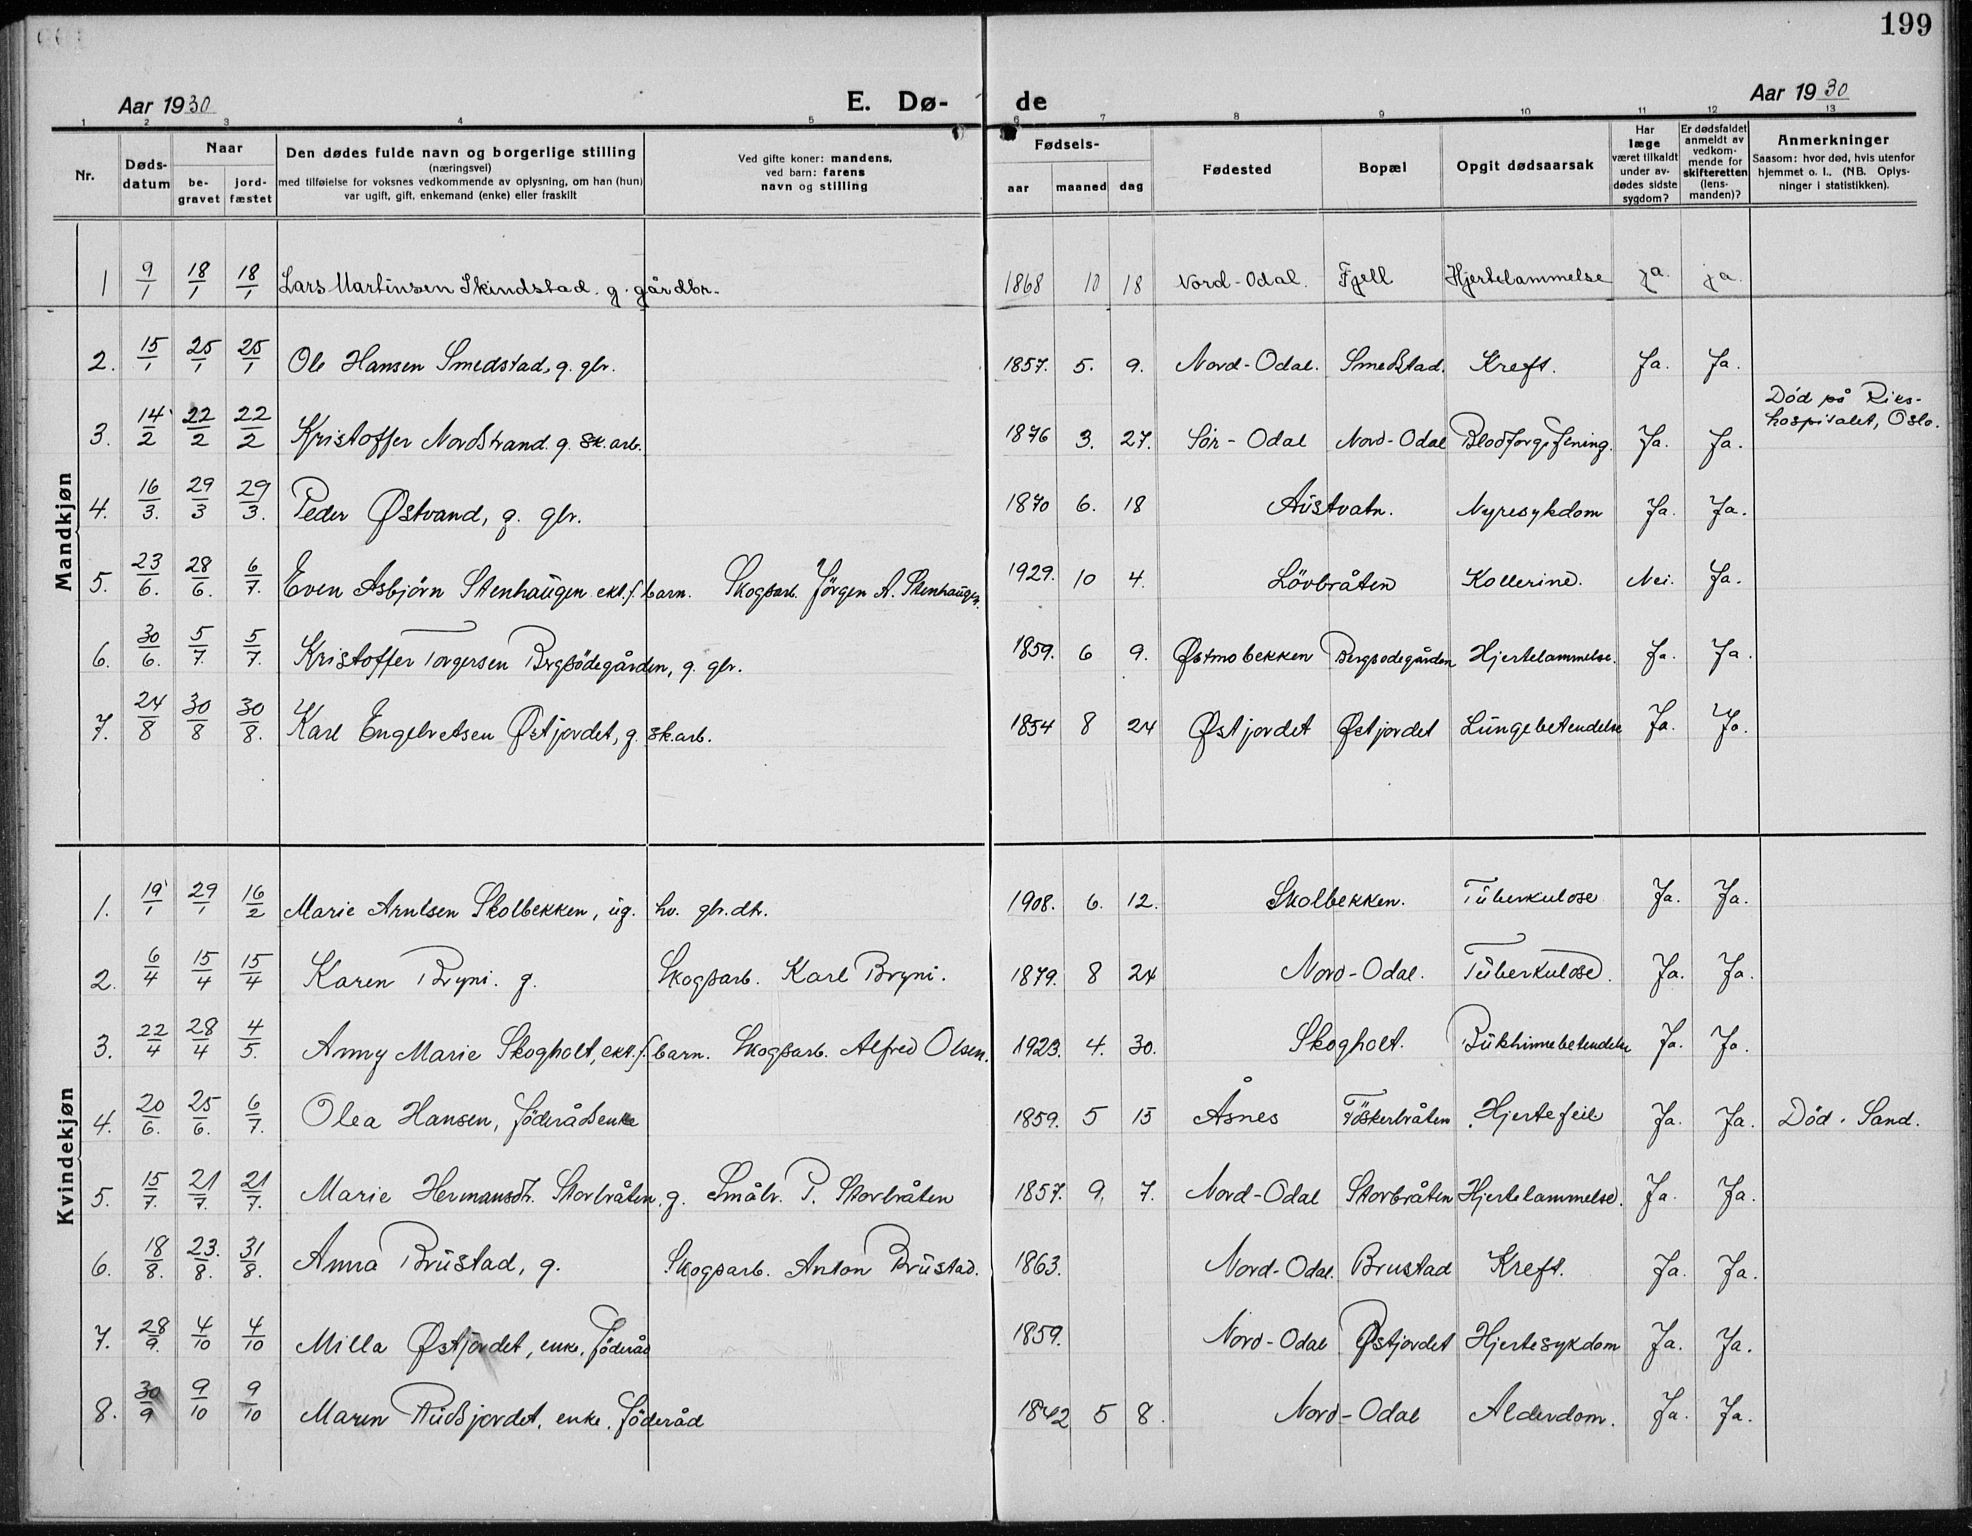 199
Aar 1930
E. Dø-
de
Aar 1930
1 2 3 4 5 6 7 8 9 10 11 12 13
Nr. | Døds-datum | Naar be-gravet | jord-fæstet | Den dødes fulde navn og borgerlige stilling (næringsvei) med tilføielse for voksnes vedkommende av oplysning, om han (hun) var ugift, gift, enkemand (enke) eller fraskilt | Ved gifte koner: mandens, ved barn: farens navn og stilling | Fødsels- aar | maaned | dag | Fødested | Bopæl | Opgit dødsaarsak | Har læge været tilkaldt under av-dødes sidste sygdom? | Er dødsfaldet anmeldt av vedkom-mende for skifteretten (lens-manden)? | Anmerkninger Saasom: hvor død, hvis utenfor hjemmet o. l.. (NB. Oplys-ninger i statistikken).
Mandkjøn
1 9/1 18/1 18/1 Lars Martinsen Skindstad. g. gårdbr. 1868 10 18 Nord-Odal. Fjell Hjertelammelse ja. ja.
2. 15/1 25/1 25/1 Ole Hansen Smedstad, g. gbr. 1857. 5. 9. Nord-Odal. Smedstad. Kreft. Ja. Ja.
3. 14/2 22/2 22/2 Kristoffer Nordstrand. g. sk.arb. 1876 3. 27. Sör-Odal Nord-Odal Blodforgiftning. Ja. Ja. Död på Riks-
hospitalet, Oslo.
4. 16/3. 29/3 29/3. Peder Østvand, g. gbr. 1870 6. 18 Austvatn. Nyresykdom Ja. Ja.
5. 23/6. 28/6. 6/7. Even Asbjørn Stenhaugen ekt.f. barn. Skogsarb. Jörgen A. Stenhaugen. 1929. 10 4. Lövbråten Kollerine. Nei. Ja.
6. 30/6. 5/7. 5/7. Kristoffer Torgersen Bergsödegården, g. gbr. 1859. 6 9. Østmobekken Bergsodegården Hjertelammelse. Ja. Ja.
7. 24/8 30/8 30/8. Karl Engebretsen Østjordet, g. sk.arb. 1854 8 24 Østjordet Østjordet Lungebetendelse Ja. Ja.
Kvindekjøn
1. 19/1 29/1 16/2 Marie Arntsen Skolbekken, ug. hv. gbr.dtr. 1908. 6. 12. Skolbekken. Tuberkulose Ja. Ja.
2. 6/4 15/4 15/4 Karen Bryni. g. Skogsarb. Karl Bryni. 1879. 8 24 Nord-Odal. Tuberkulose. Ja. Ja.
3. 22/4 28/4 4/5. Anny Marie Skogholt, ekt.f. barn. Skogsarb. Alfred Olsen. 1923. 4. 30. Skogholt. Bukhinnebetendelse Ja. Ja.
4. 20/6. 25/6. 6/7. Olea Hansen, föderådsenke 1859. 5 15 Åsnes Töskerbråten Hjertefeil Ja. Ja. Död i Sand.
5. 15/7. 21/7. 21/7. Marie Hermansdtr. Storbråten. g. Småbr. P. Storbråten 1857. 9. 7. Nord-Odal Storbråten Hjertelammelse. Ja. Ja.
6. 18/8. 23./8. 31/8. Anna Brustad, g. Skogsarb. Anton Brustad. 1863. Nord-Odal. Brustad Kreft. Ja. Ja.
7. 28/9. 4/10 4/10 Milla Østjordet, enke, föderåd 1859. Nord-Odal Østjordet Hjertesykdom Ja. Ja.
8. 30/9 9/10 9/10 Maren Audsjordet. enke. föderåd 1842 5 8. Nord-Odal Alderdom. Ja. Ja.